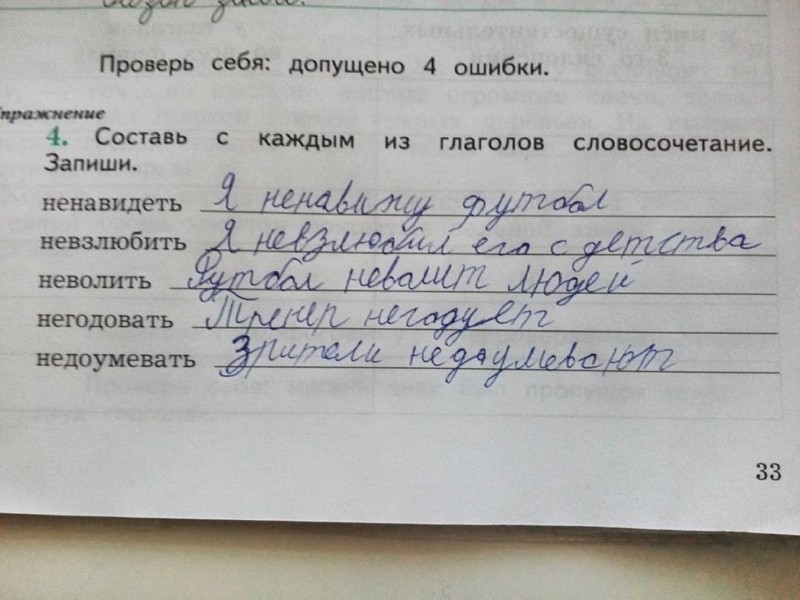 Проверь себя: допущено 4 ошибки.
Упражнение
4. Составь с каждым из глаголов словосочетание.
Запиши.
ненавидеть Я ненавижу футбол
невзлюбить Я невзлюбил его с детства
неволить Футбол неволит людей
негодовать Тренер негодует
недоумевать Зрители недоумевают
33